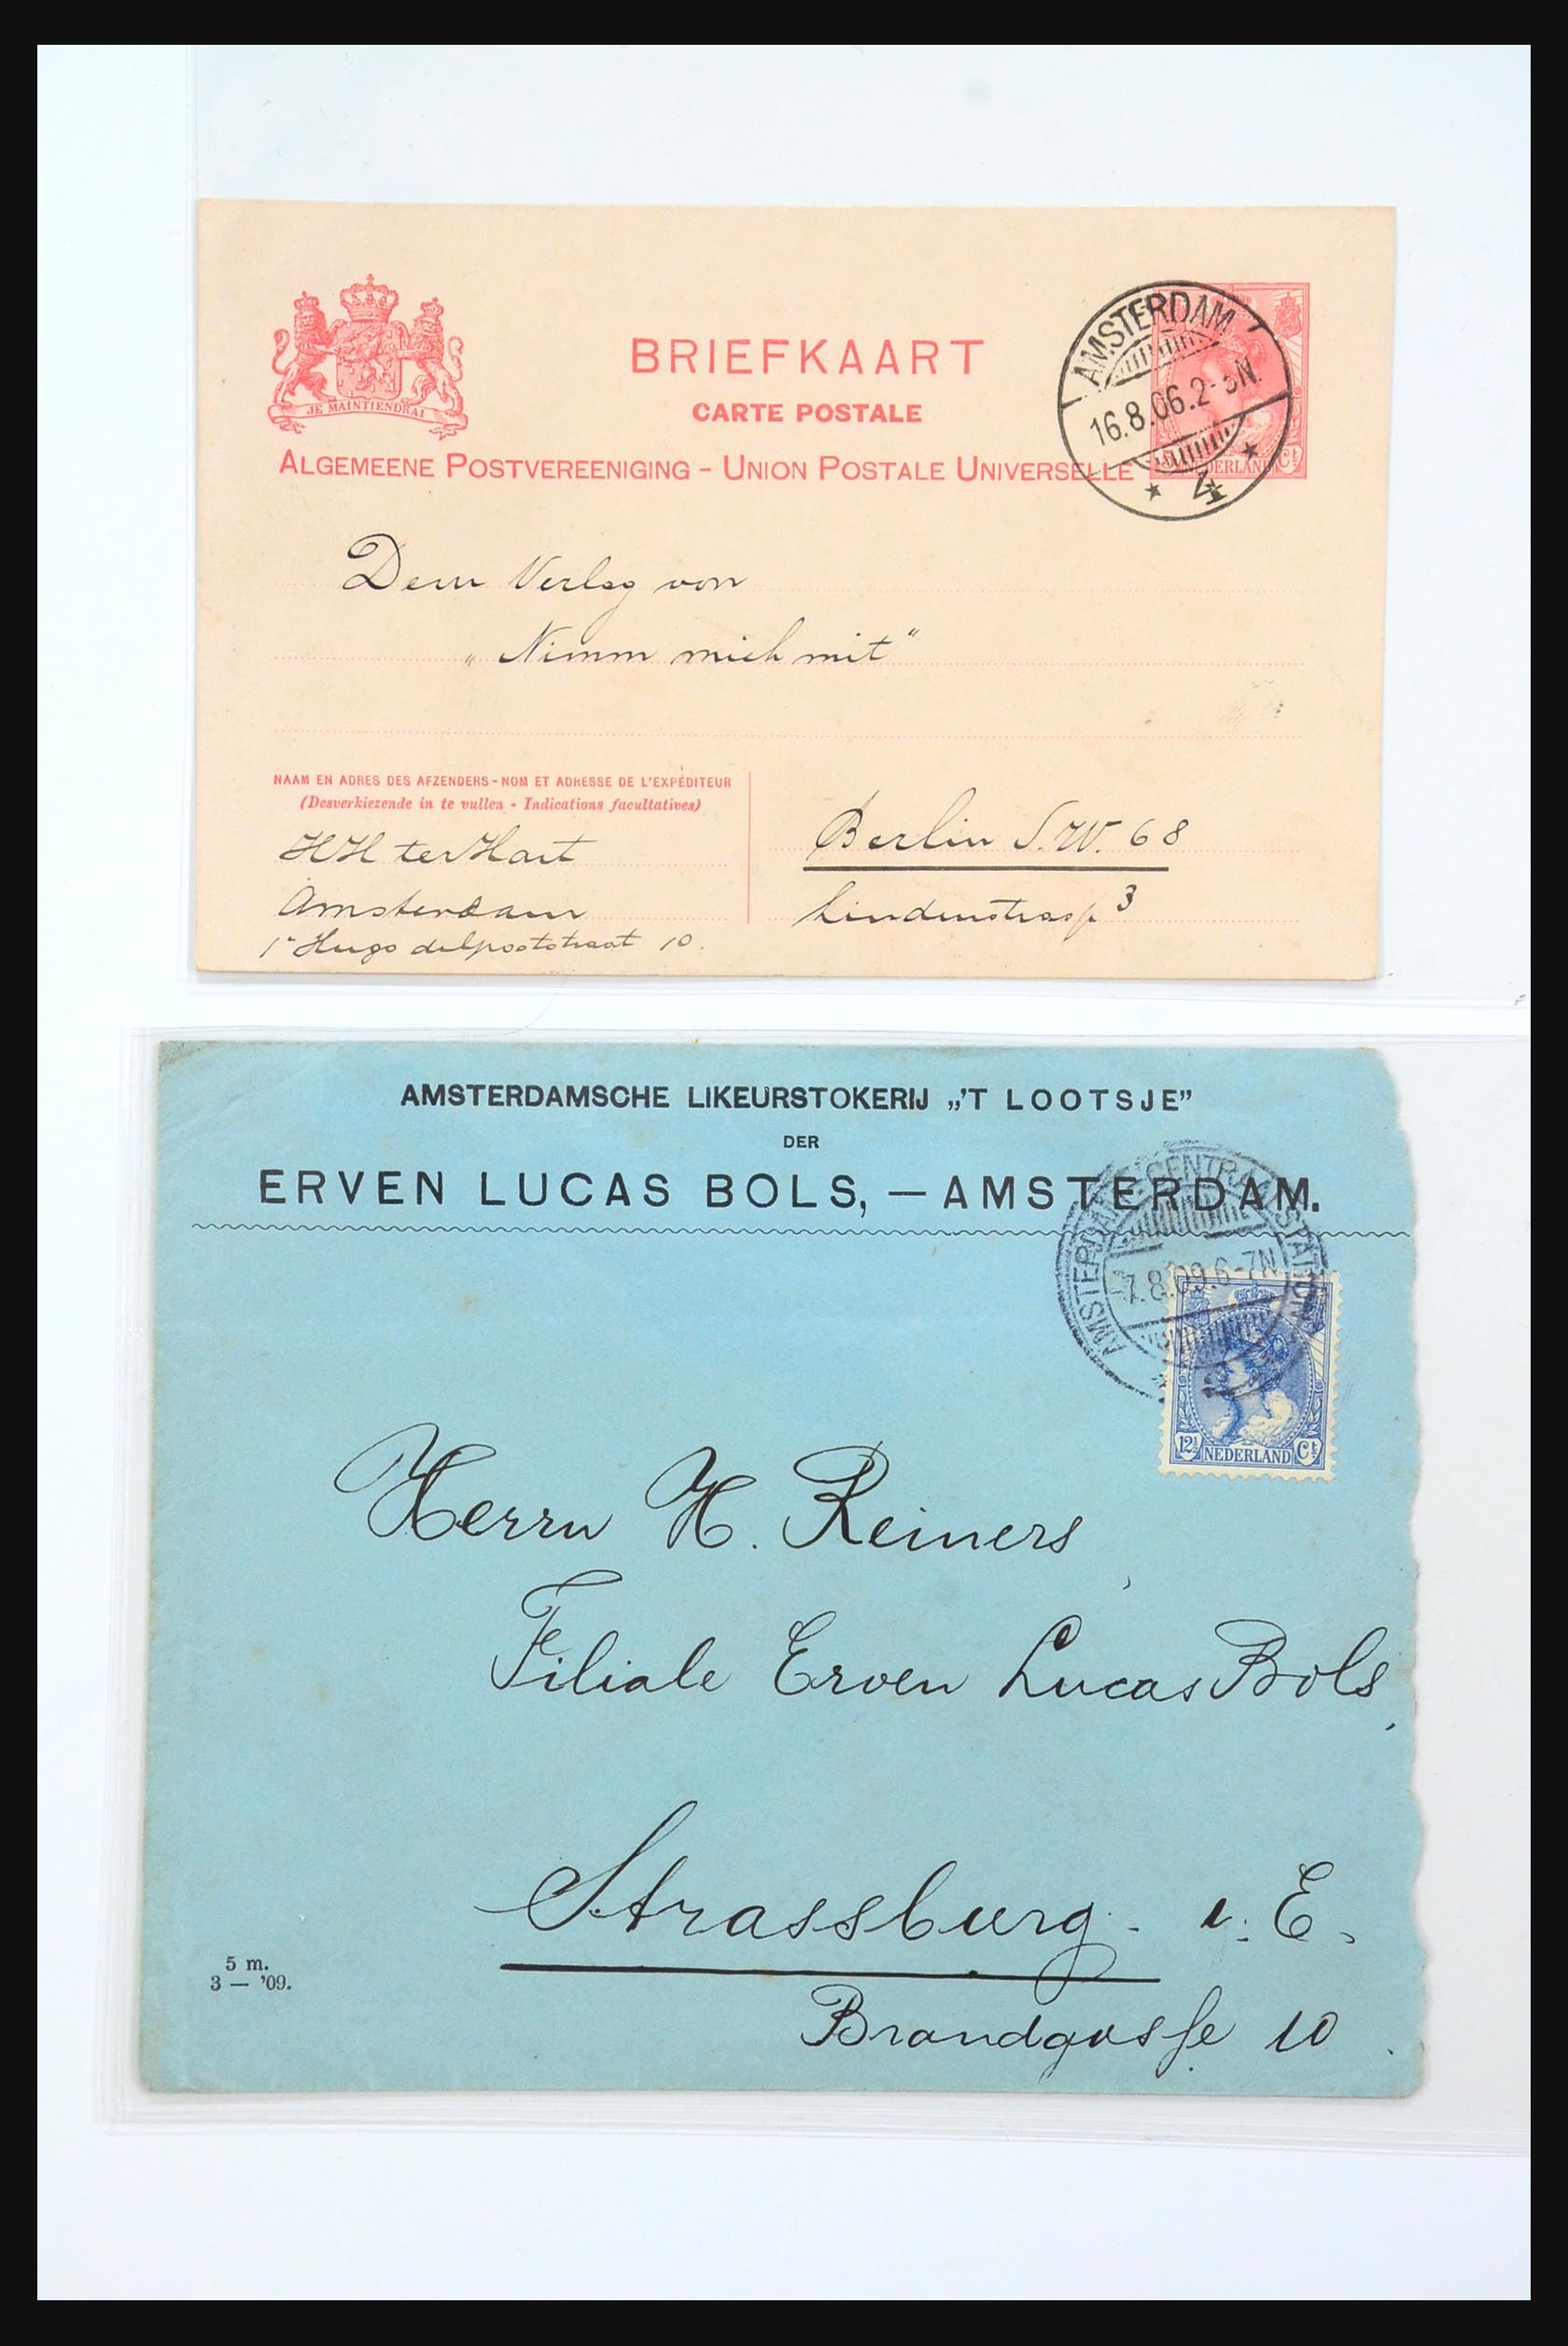 JE MAINTIENDRAI
BRIEFKAART
CARTE POSTALE
ALGEMEENE POSTVEREENIGING - UNION POSTALE UNIVERSELLE
AMSTERDAM
16.8.06.2-3N.
4
NEDERLAND Ct
Dem Verlag von
„Nimm mich mit"
NAAM EN ADRES DES AFZENDERS - NOM ET ADRESSE DE L'EXPÉDITEUR
(Desverkiezende in te vullen - Indications facultatives)
HH ter Hart
Amsterdam
1e Hugo de Grootstraat 10.
Berlin S.W. 68
Lindenstrasse 3
AMSTERDAMSCHE LIKEURSTOKERIJ „'T LOOTSJE”
DER
ERVEN LUCAS BOLS, — AMSTERDAM.
AMSTERDAM CENTRAAL STATION
7.8.09.6-7N
12½ NEDERLAND Ct
Herrn H. Reiners
Filiale Erven Lucas Bols,
Strassburg. i. E.
Brandgasse 10.
5 m.
3 — '09.